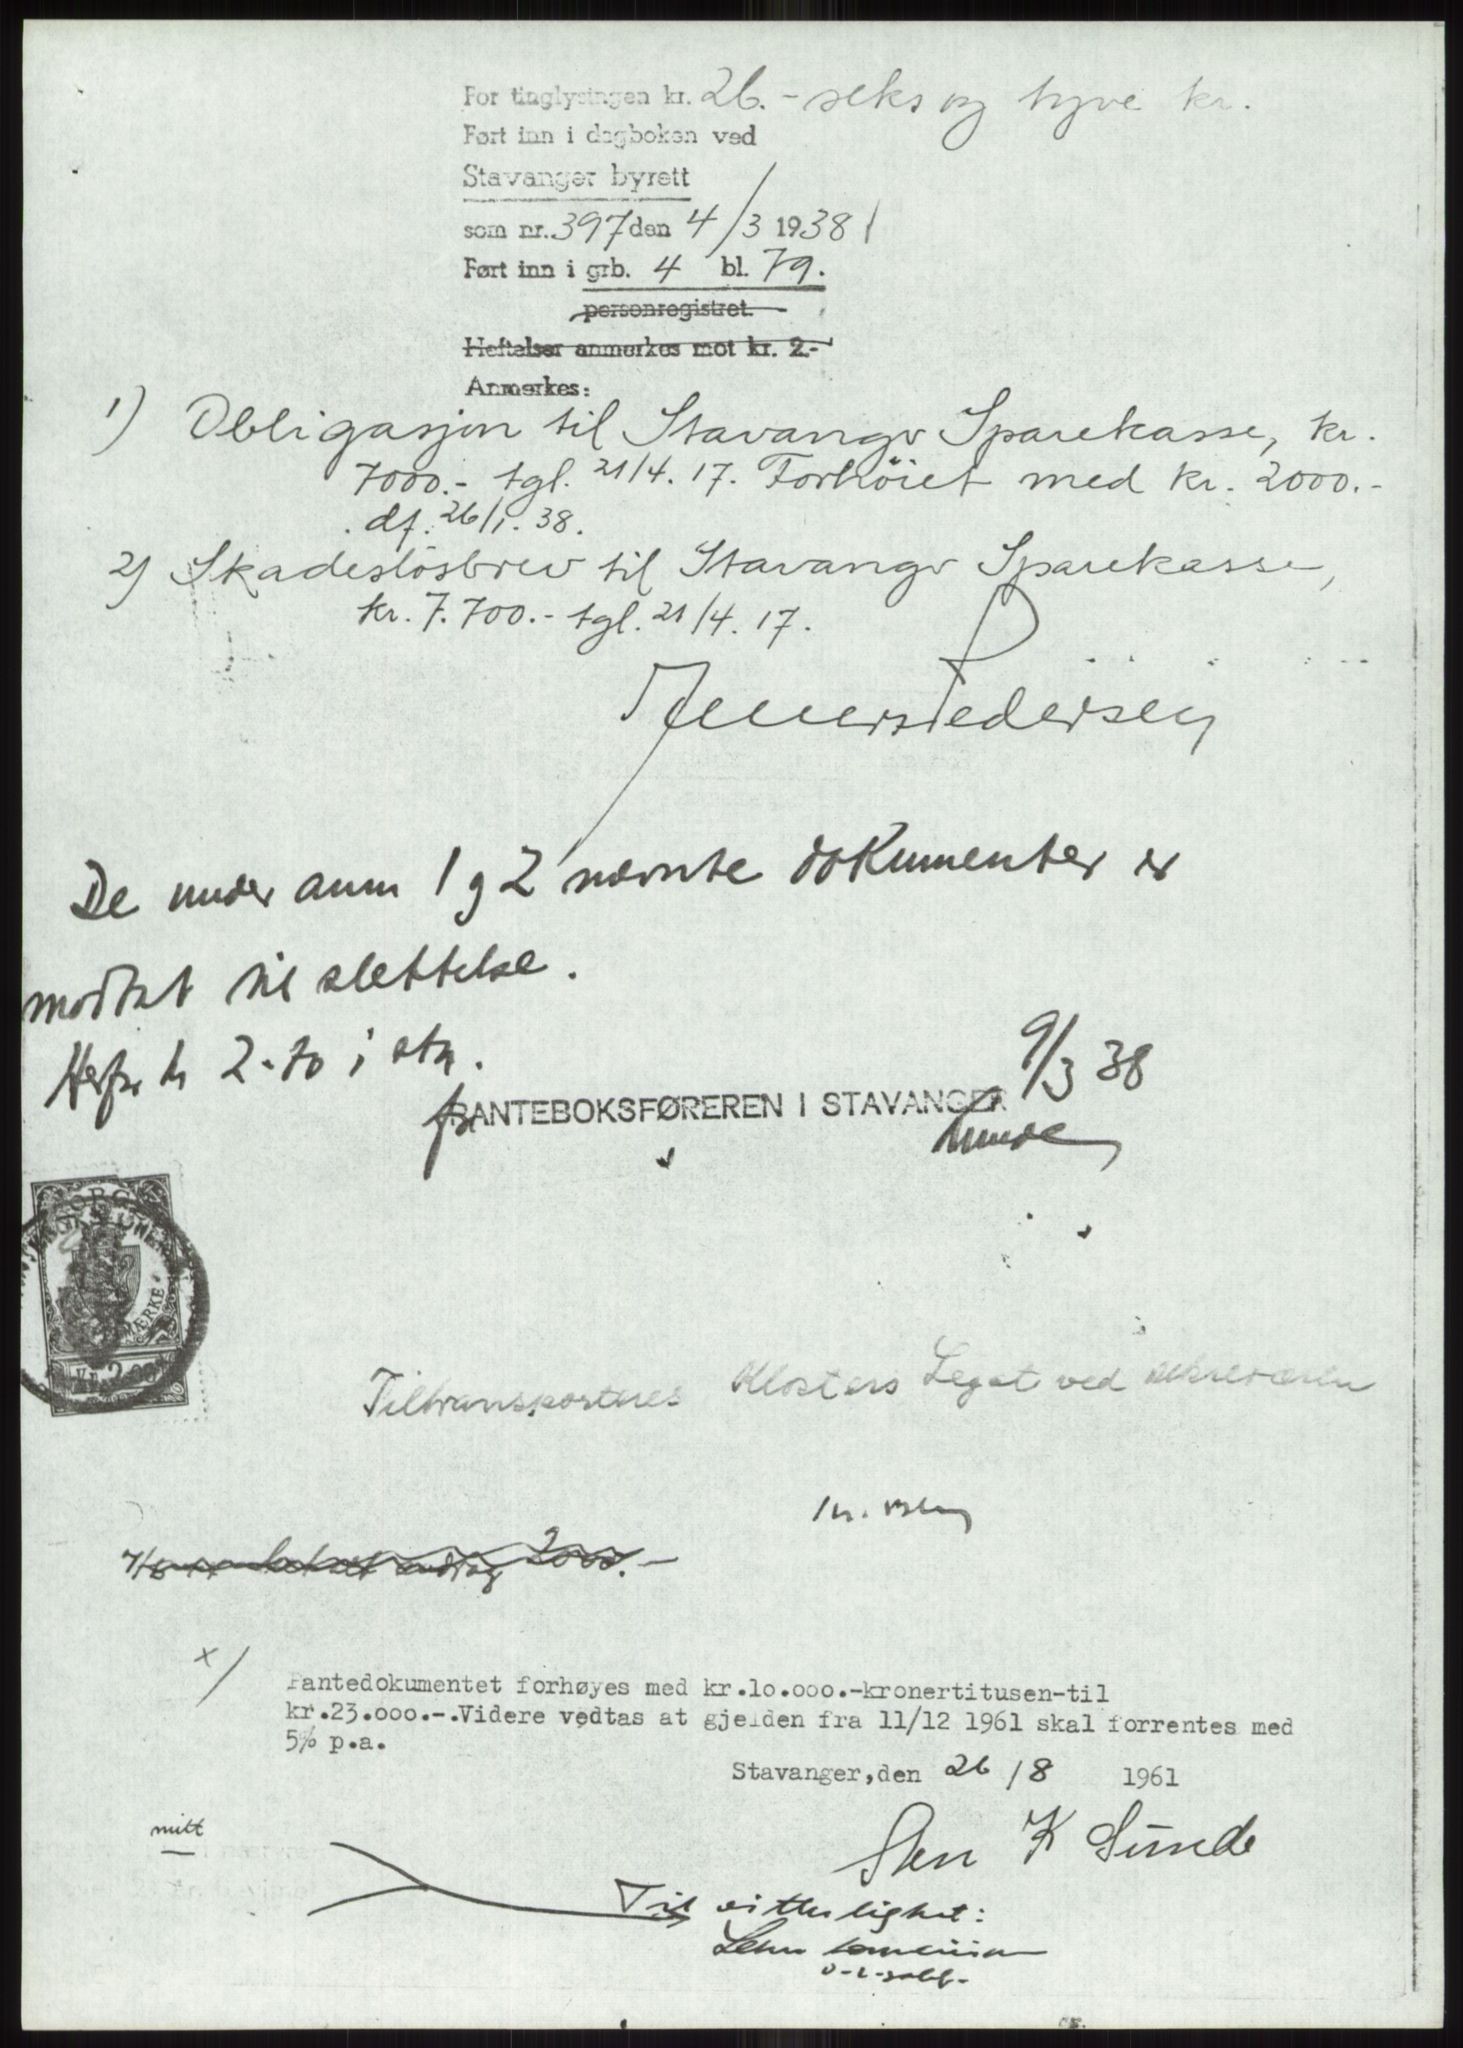 For tinglysingen kr. 26.- seks og tyve kr.
Ført inn i dagboken ved
Stavanger byrett
som nr. 397 den 4/3 1938
Ført inn i grb. 4 bl. 79.
personregistret.
Heftelser anmerkes mot kr. 2.-
Anmerkes:
1) Obligasjon til Stavanger Sparekasse, kr.
7000.- tgl. 21/4.17. Forhöiet med kr. 2000.-
df. 26/1.38.
2) Skadeslösbrev til Stavanger Sparekasse,
kr. 7.700.- tgl. 21/4.17.
Pedersen
De under anm 1 og 2 nævnte dokumenter er
modtat til slettelse.
2.70 i
9/3 38
PANTEBOKSFØREREN I STAVANGER
Tiltransporteres Klosters Legat ved
2000.-
x/
Pantedokumentet forhøyes med kr.10.000.-kronertitusen-til
kr.23.000.-.Videre vedtas at gjelden fra 11/12 1961 skal forrentes med
5% p.a.
Stavanger,den 26/8 1961
mitt
K Sunde
Til vitterlighet: